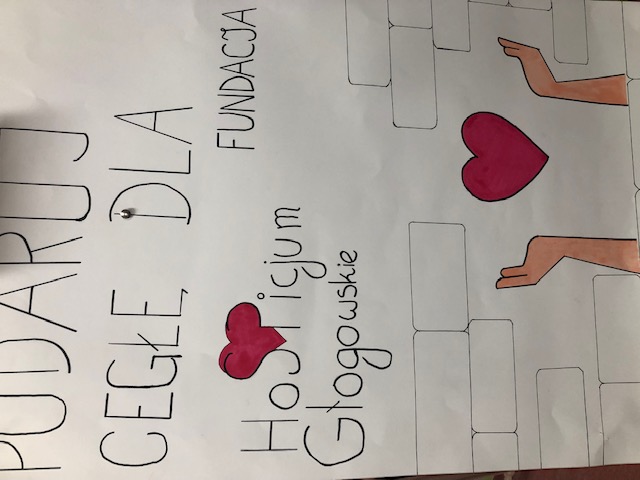 PODARUJ
CEGŁĘ DLA
FUNDACJA
Hospicjum
Głogowskie